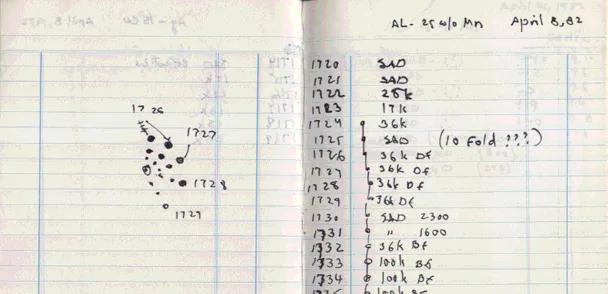 1726
1727
1728
1729
AL- 25 w/o Mn April 8, 82
1720 SAD
1721 SAD
1722 25k
1723 17k
1724 36k
1725 SAD (10 Fold ???)
1726 36k Df
1727 36k Df
1728 36k Df
1729 36k Df
1730 SAD 2300
1731 " 1600
1732 36k Bf
1733 100k Bf
1734 100k Bf
100k Bf